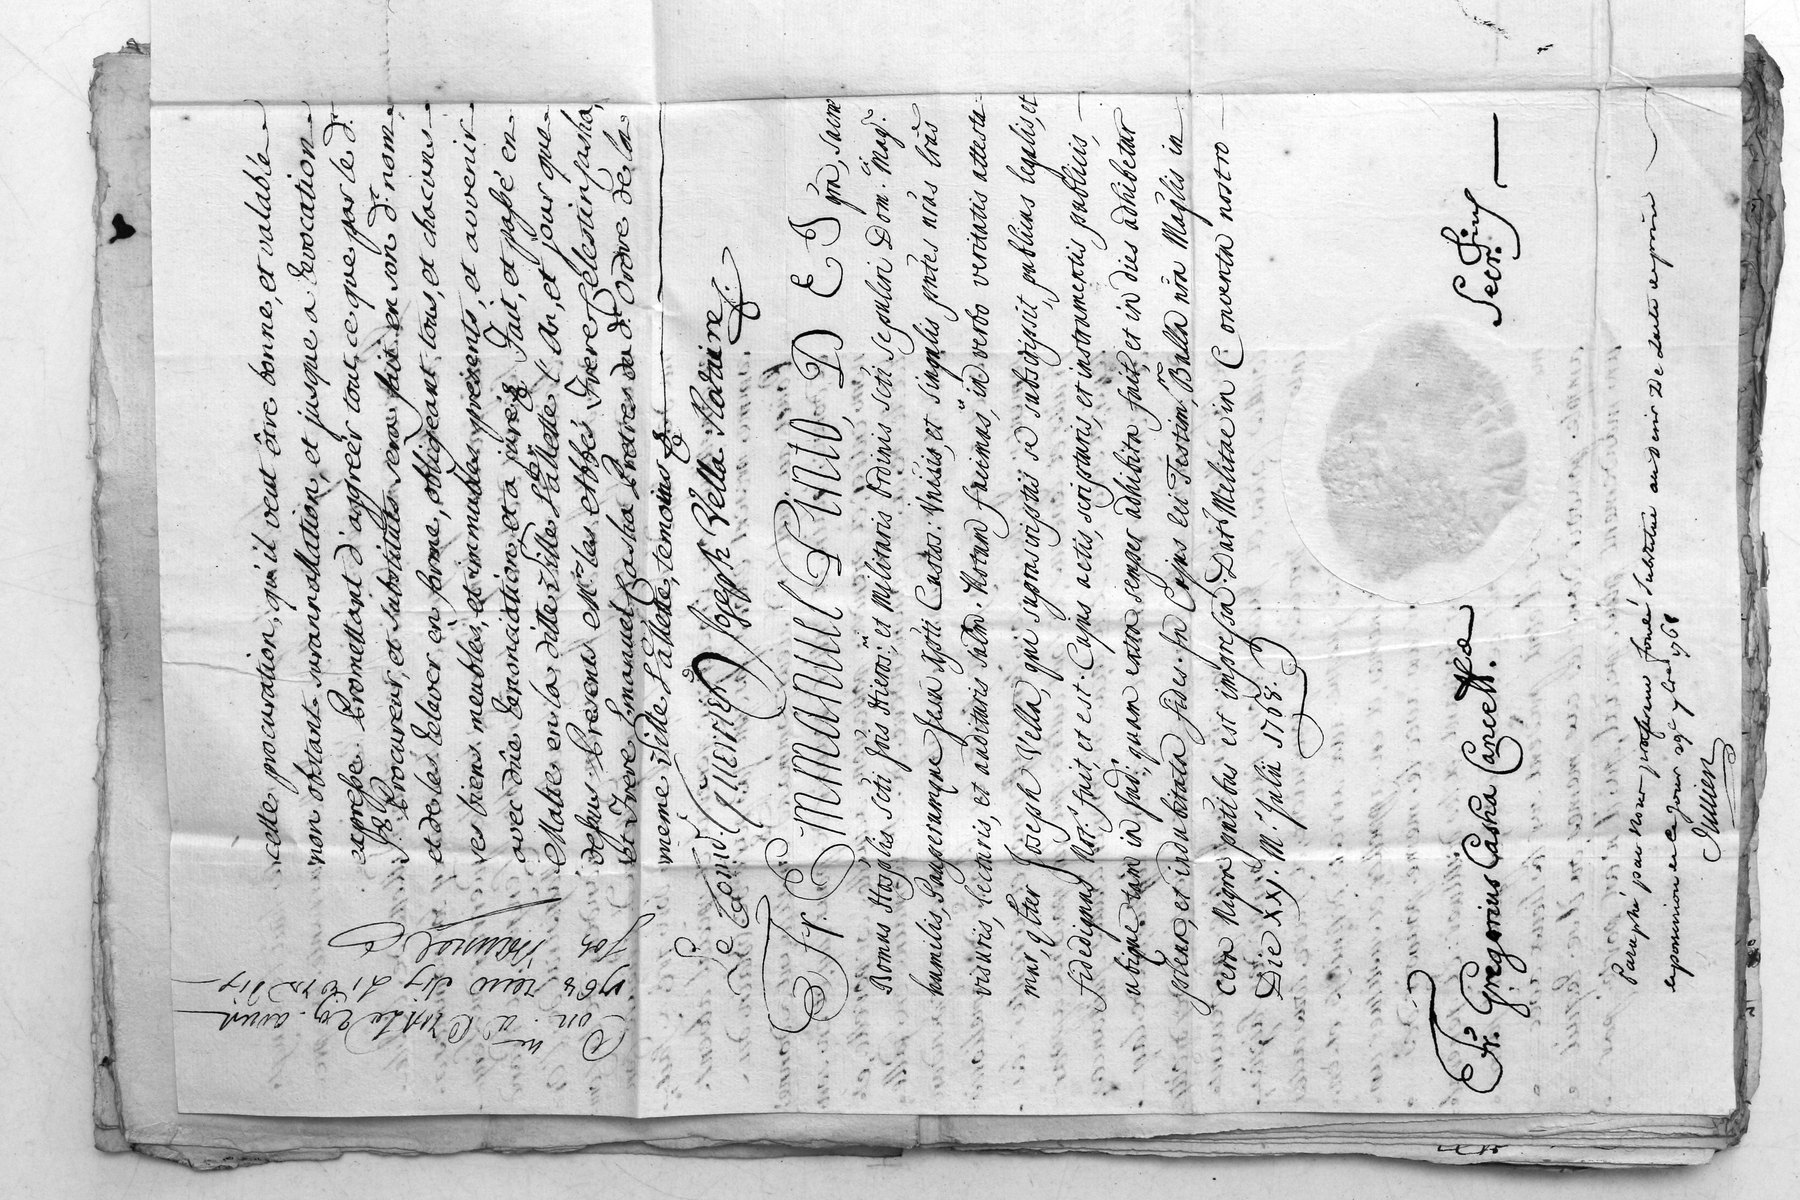 celle procuration, qu'il veut être bonne, et valable
non obstant surannallation, et jusque a revocation
expresse Promettant d'agréer tout ce que par le d.
Sr. Procureur, et substituts sera fait en son d. nom,
et de les relever en forme, obligeant tous, et chacuns
ses biens meubles, et immeubles presents, et avvenir
avec düe renonciation, et a juré. Fait, et passé en
Malte en la ditte Ville Vallette l'An, et jour que
desus Presents Mrs. les Abbés Frere Celestin Pasha,
et Frere Emanuel Pasha Pretres du d. Ordre de la
meme Ville Vallette, temoins
Le Comd. Joseph Vella Notaire
Fr. Emmanuel Pinto, DEI gra, Sacræ
Domus Hosplis Scti Jois Hieros: et Militaris Ordinis Scti Sepulcri Dom. Mag.
humilis, Pauperumque Jesu Xpti Custos: Unisis, et singulis pntes nras lras
visuris, lecturis, et audituris salm. Notum facimus, in verbo veritatis attesta
mur, qliter Joseph Vella, qui suprascriptis se subscripsit, publicus legalis, et
fidedignus Not. fuit, et est. Cujus actis, scripturis, et instrumentis publicis,
ubique tam in Jud. quam extra semper adhibita fuit, et in dies adhibetur
plena, et indubitata fides. In Cujus rei Testim. Bulla nra Maglis in
cera nigra pntibus est impressa. Dat. Melitæ in Conventu nostro
Die XXI. M. Julii 1768.
Fr. Gregorius Pasha Cancell.
Secr.
Paraphé par nous soussigné substitué au desir de l'acte
expedition en ce jour 29e 1768
Jullien